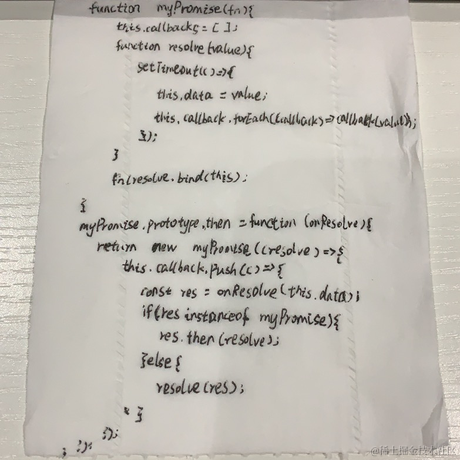 function myPromise(fn){
this.callbacks = [ ];
function resolve(value){
setTimeout(()=>{
this.data = value;
this.callback.forEach((callback)=>callback(value));
});
}
fn(resolve.bind(this);
}
myPromise.prototype.then = function (onResolve){
return new myPromise((resolve)=>{
this.callback.push(()=>{
const res = onResolve(this.data);
if(res instanceof myPromise){
res.then(resolve);
}else{
resolve(res);
}
});
});
@稀土掘金技术社区